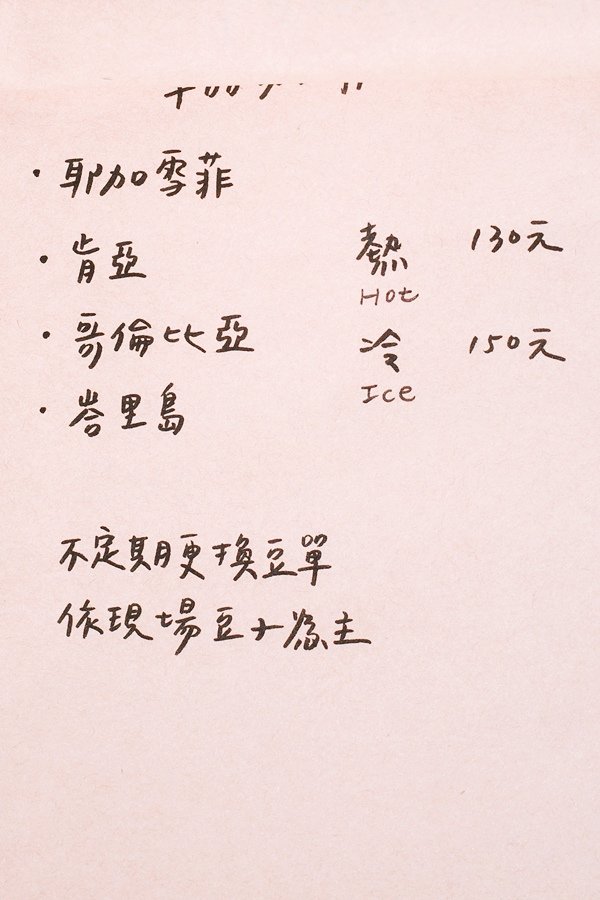 · 耶加雪菲
· 肯亞
· 哥倫比亞
· 峇里島
熱 130元
Hot
冷 150元
Ice
不定期更換豆單
依現場豆子為主